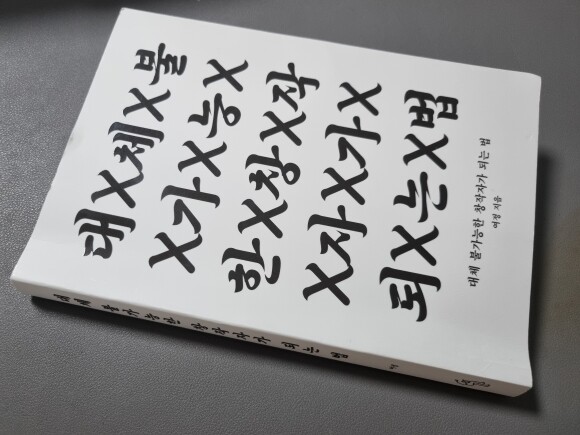 대X체X불
X가X능X
한X창X작
X자X가X
되X는X법
대체 불가능한 창작자가 되는 법
지음
대체 불가능한 창작자가 되는 법